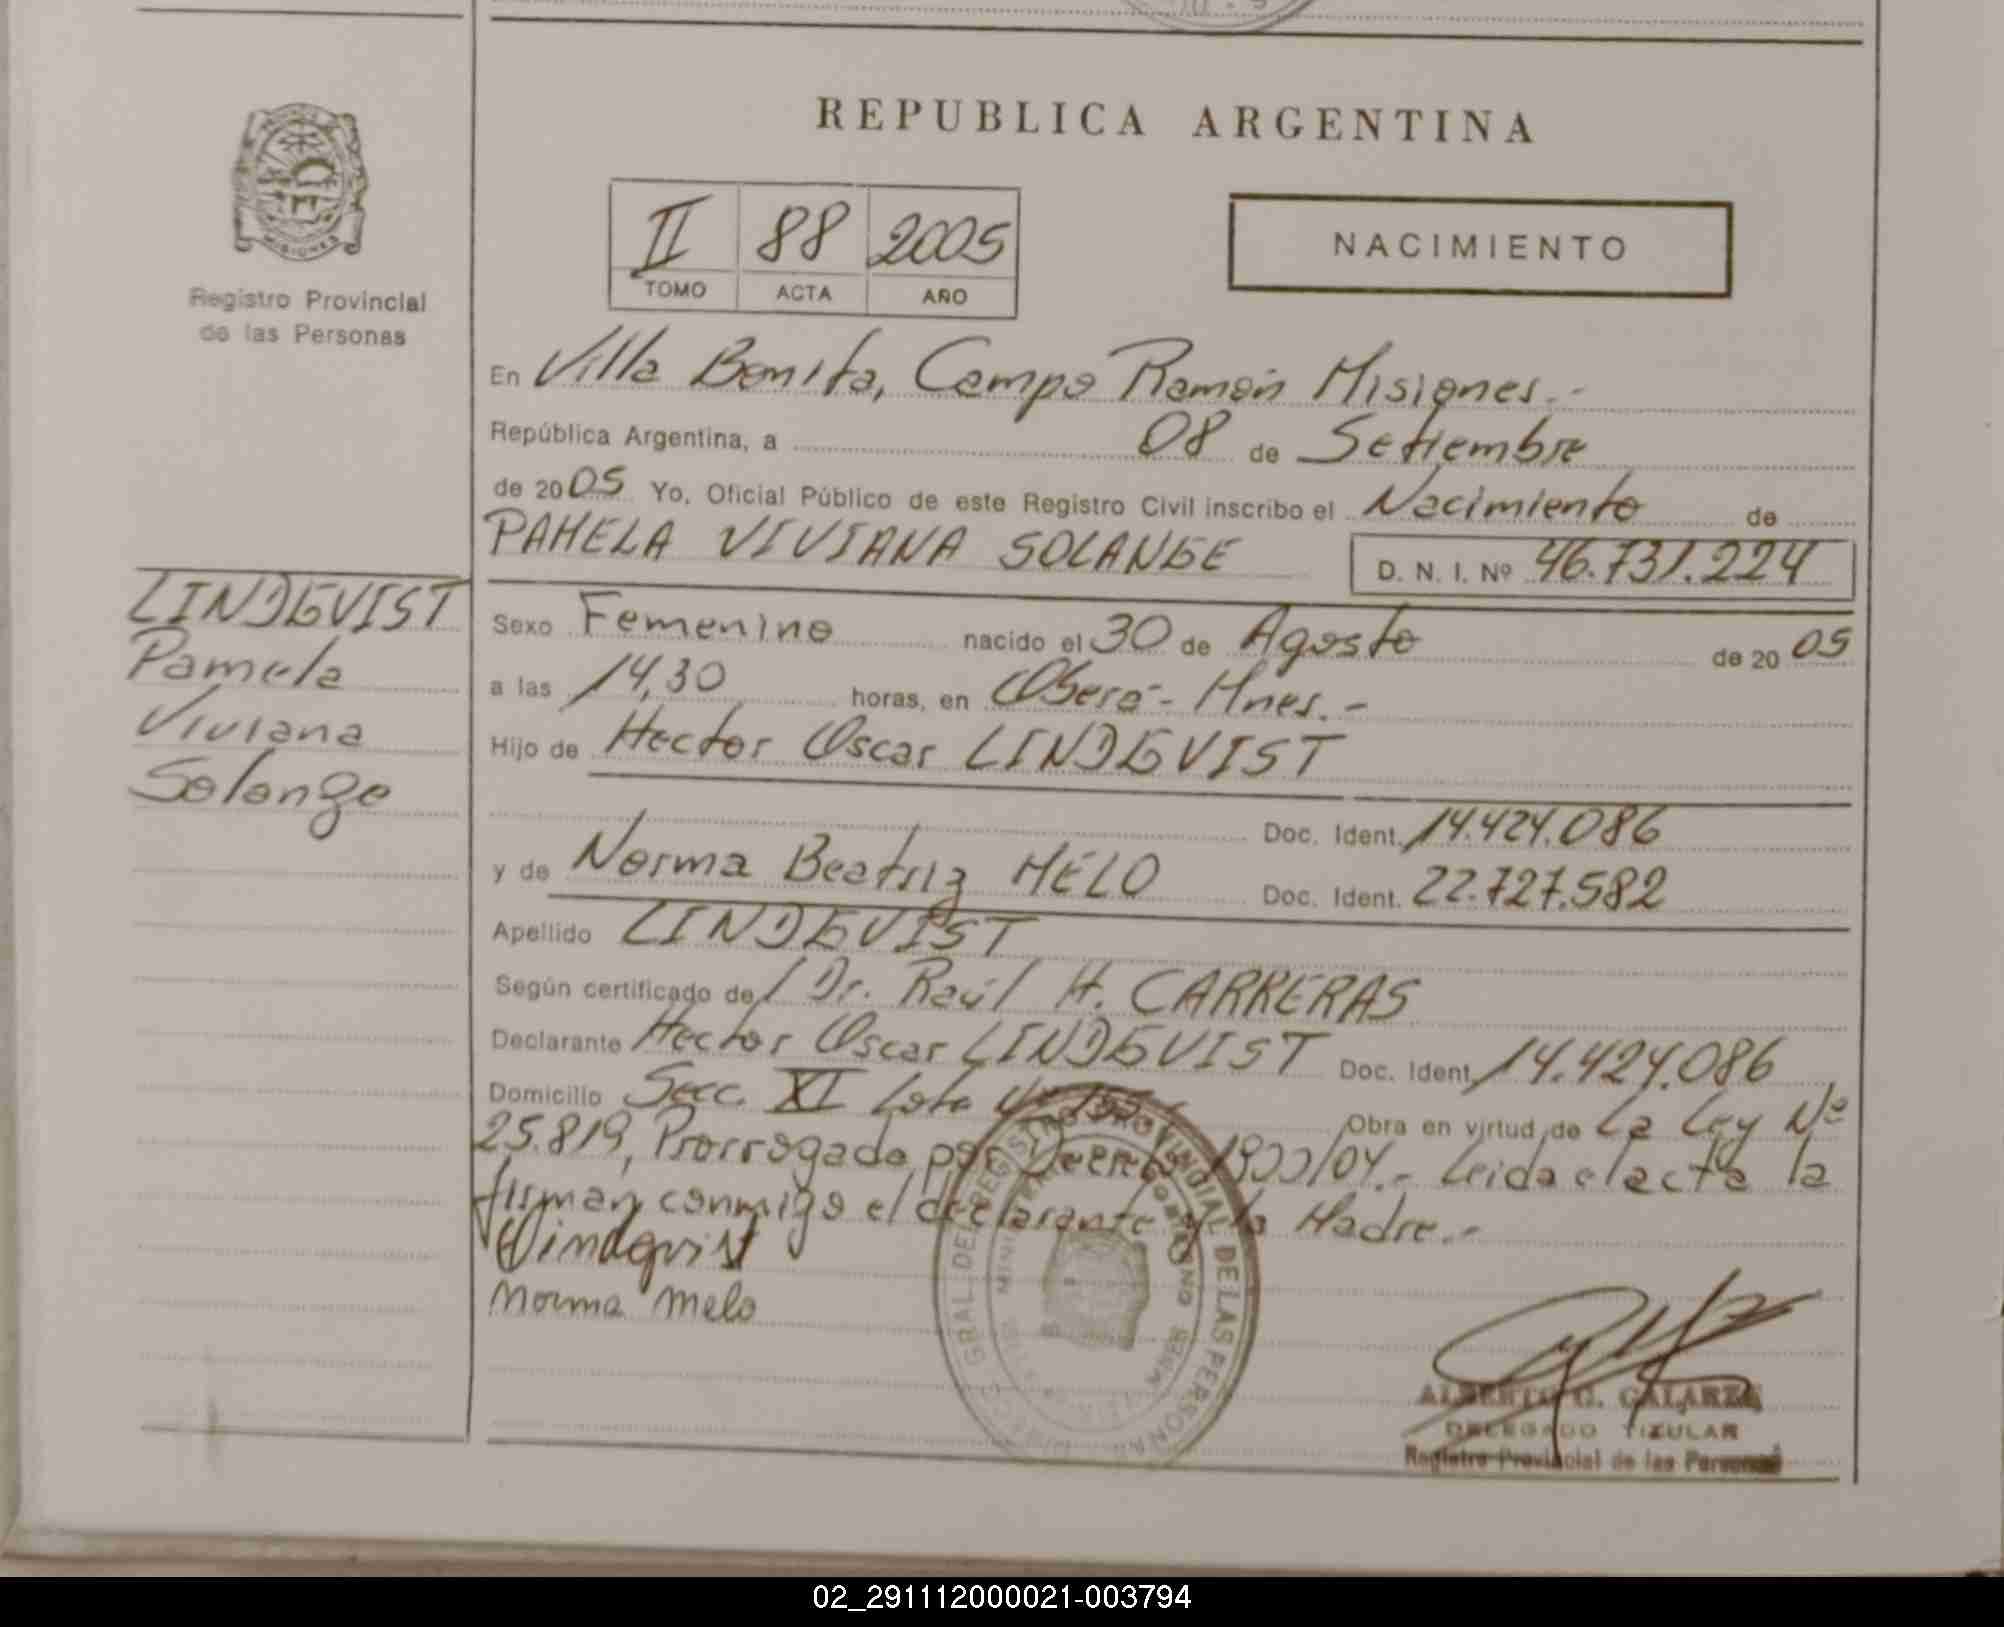 REPUBLICA ARGENTINA
II 88 2005
TOMO ACTA AÑO
NACIMIENTO
MISIONES
Registro Provincial
de las Personas
En Villa Bonita, Campo Ramón Misiones.-
República Argentina, a 08 de Setiembre
de 2005 Yo, Oficial Público de este Registro Civil inscribo el Nacimiento de
PAMELA VIVIANA SOLANGE D. N. I. Nº 46.731.224
LINDQVIST
Pamela
Viviana
Solange
Sexo Femenino nacido el 30 de Agosto de 2005
a las 14,30 horas, en Oberá - Mnes.-
Hijo de Hector Oscar LINDQVIST
Doc. Ident. 14.424.086
y de Norma Beatriz MELO Doc. Ident. 22.727.582
Apellido LINDQVIST
Según certificado de Dr. Raúl H. CARRERAS
Declarante Hector Oscar LINDQVIST Doc. Ident. 14.424.086
Domicilio Secc. XI Lote Obra en virtud de La Ley Nº
25.819, Prorrogada por Decreto /04.- Leida el acta la
firman conmigo el declarante y la Madre.-
Norma Melo
REGISTRO PROVINCIAL DE LAS PERSONAS
ALBERTO G. GALARZA
DELEGADO TITULAR
Registro Provincial de las Personas
02_291112000021-003794